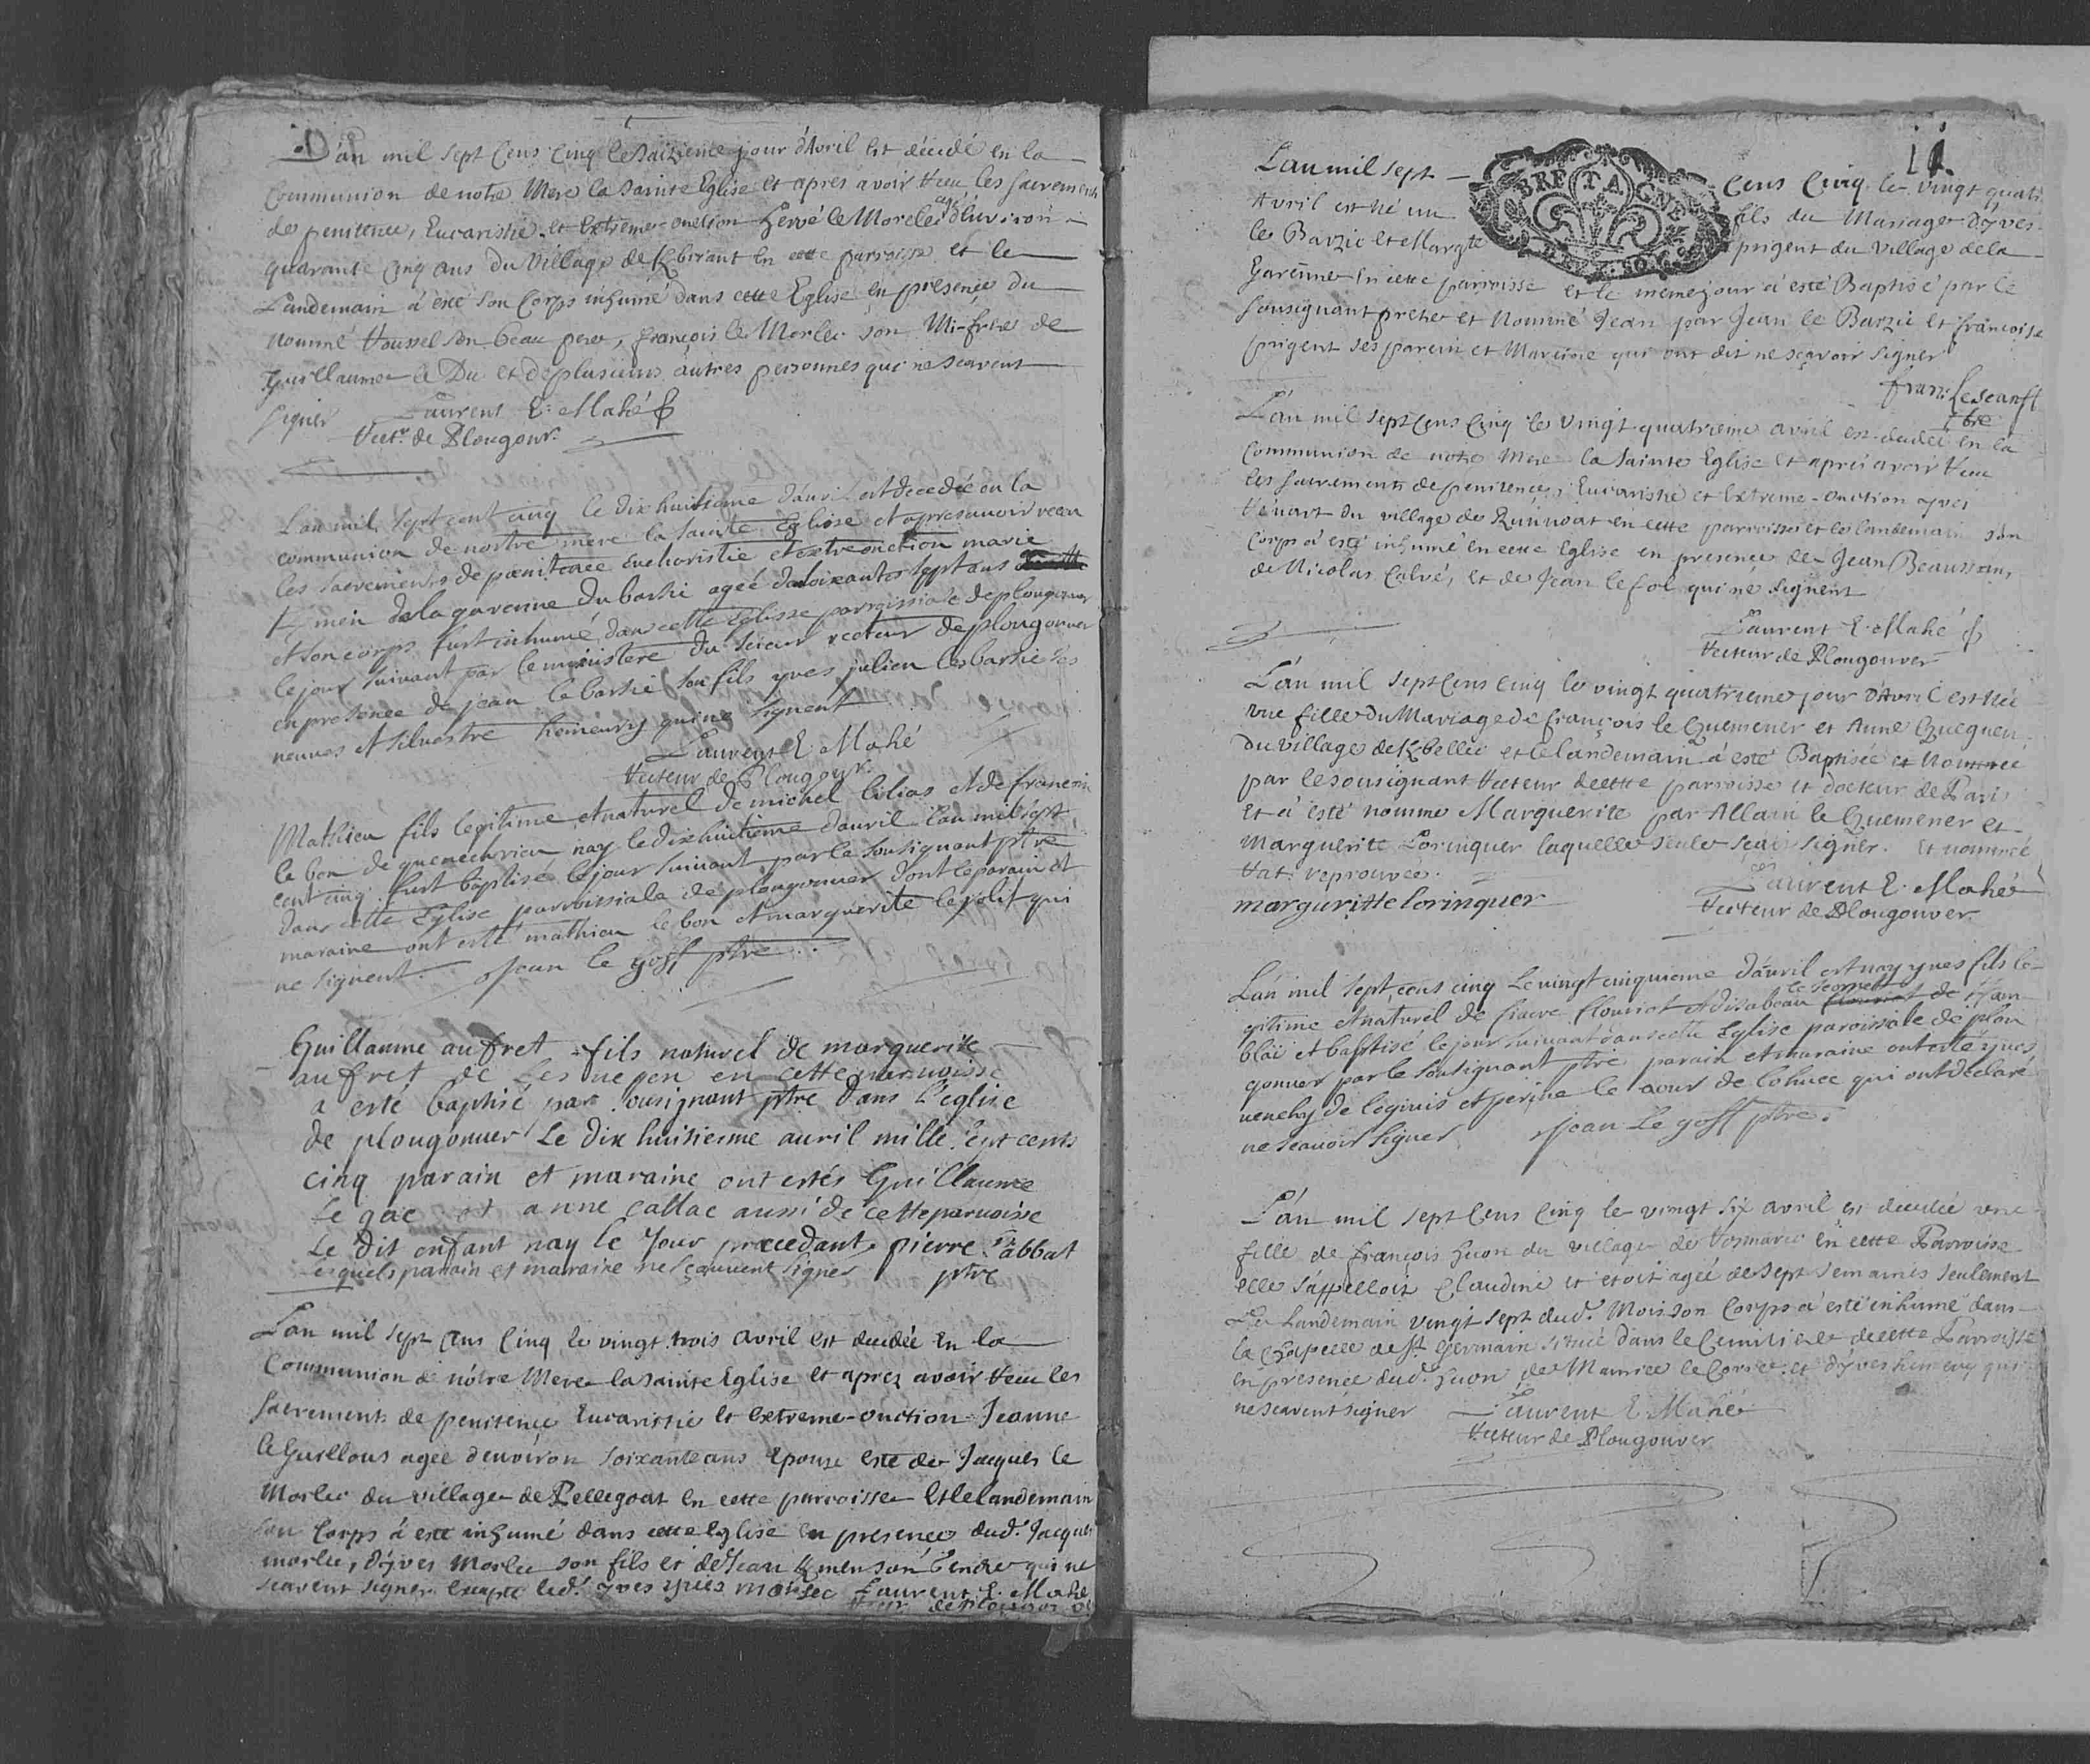 L'an mil sept Cens Cinq le Saizieme jour d'Avril est décédé en la
Communion de notre Mere la Sainte Eglise et apres avoir Receu les Sacremens
de penitence, Eucaristie et Extreme-onction Hervé le Morlec agé d'environ
quarante Cinq ans du Village de Kbirant en cette parroisse et le
Landemain á esté son Corps inhumé dans cette Eglise en presence du
nommé Roussel son beau pere, françois le Morlec son Mi-frere de
Guillaume le Du et de plusieurs autres personnes qui ne scavent
Signer Laurent E. Mahé
Rectr. de Plougonr.
L'an mil sept cent cinq le dix huitieme d'avril est decedée en la
communion de nostre mere la sainte Eglise et apres avoir receu
les sacrements de poenitence eucharistie et extreonction marie
Kmen de la garenne du barhic ageé de soixante sept ans
et son corps fust inhumé dans cette Eglisse parroissiale de plougonuer
le jour suivant par le ministere du sieur recteur de plougonuer
en presence de jean le barhic son fils yves, julien les barhic ses
neuves et silvestre hemeury qui ne signent
Laurent E. Mahé
Recteur de Plougonr.
Mathieu fils legitime et naturel de michel lilias et de francoise
le bon de quenecurien nay le dix huitieme d'auril l'an mil sept
cent cinq fust baptisé le jour suivant par le sousignant ptre
dans cette Eglise parroissiale de plougonuer dont le parain et
maraine ont esté mathieu le bon et marguerite le jolit qui
ne signent. Jean le goff ptre
Guillaume aufret fils naturel de marguerite
aufret de Les en cette parroisse
a esté baptisé par sousignant ptre dans l'eglise
de plougonuer Le dix huitiesme auril mille sept cents
cinq parain et maraine ont estés Guillaume
Le gac et anne callac aussi de cette parroisse
Le dit enfant nay le Jour precedant pierre l'abbat
lesquels parain et maraine ne sçauuent signer ptre
L'an mil sept Cens Cinq le vingt trois Avril est decedée en la
Communion de nótre Mere la Sainte Eglise et aprez avoir Receu les
Sacrements de penitence Eucaristie et extreme-onction Jeanne
le Guillous agée d'environ soixante ans Epouse esté de Jacques le
Morlec du village de Pellegoat en cette parroisse et le landemain
son Corps á esté inhumé dans cette Eglise en presence dud. Jacques
morlec, d'yves Morlec son fils et de Jean Kmen son Gendre qui ne
scavent signer Excepté led. yves yues morlec Laurent E. Mahé
Rectr. de Plougonver
11.
L'an mil sept Cens Cinq le vingt quatr.
Avril est né un fils du Mariage d'yves
le Barzic et Margte prigent du village de la
Garenne en cette parroisse et le meme jour á esté Baptisé par le
Sousignant pretre et Nommé Jean par Jean le Barzic et françoise
prigent ses parein et Mareine qui ont dit ne sçavoir signer
franc. Lescanff
Pbre
L'an mil sept Cens Cinq le vingt quatrieme avril est decedé en la
Communion de notre Mere la Sainte Eglise et aprés avoir Receu
les Sacrements de penitence, Eucaristie et Extreme-onction yves
Henart du village de Runnoat en cette parroisse et le landemain son
Corps á esté inhumé en cette Eglise en presence de Jean Beaussan,
de Nicolas Calvés, et de Jean le fol qui ne signent
Laurent E. Mahé
Recteur de Plougonver
L'an mil sept Cens Cinq le vingt quatrieme jour d'Avril est Née
une fille du Mariage de françois le Quemener et Anne Gueguen
du village de Kbellec et le landemain á esté Baptisée et Nommée
par le sousignant Recteur de cette parroisse et docteur de Paris
Et á esté nommé Marguerite par Allain le Quemener et
Marguerite Lorinquer laquelle seule sçait signer. Et nommée
Rat: reprouvée.
margueritte lorinquer
Laurent E. Mahé
Recteur de Plougonver
L'an mil sept cens cinq Le vingt cinquieme d'auril est nay yues fils le-
gitime et naturel de fiacre flouriot et d'isabeau le scornet de st jam
blaï et baptisé le jour suivant dans cette Eglise paroissiale de plou
gonuer par le sousignant ptre parain et maraine ont esté yues
uenehy de loginis et perine le dour de lohuec qui ont declaré
ne scauoir signer Jean Le goff ptre.
L'an mil sept Cens Cinq le vingt six avril est decedée une
fille de françois Huon du village de Rosmarec en cette Parroisse
elle s'appelloit Claudine et etoit ageé de sept semaines seulement
Le Landemain vingt sept dud. Mois son Corps á esté inhumé dans
la Chapelle de St. Germain scitué dans le Cemitiere de cette Parroisse
en presence dud. Huon de Maurice le Corre et d'yves hemery qui
ne scavent signer Laurent E. Mahé
Recteur de Plougonver